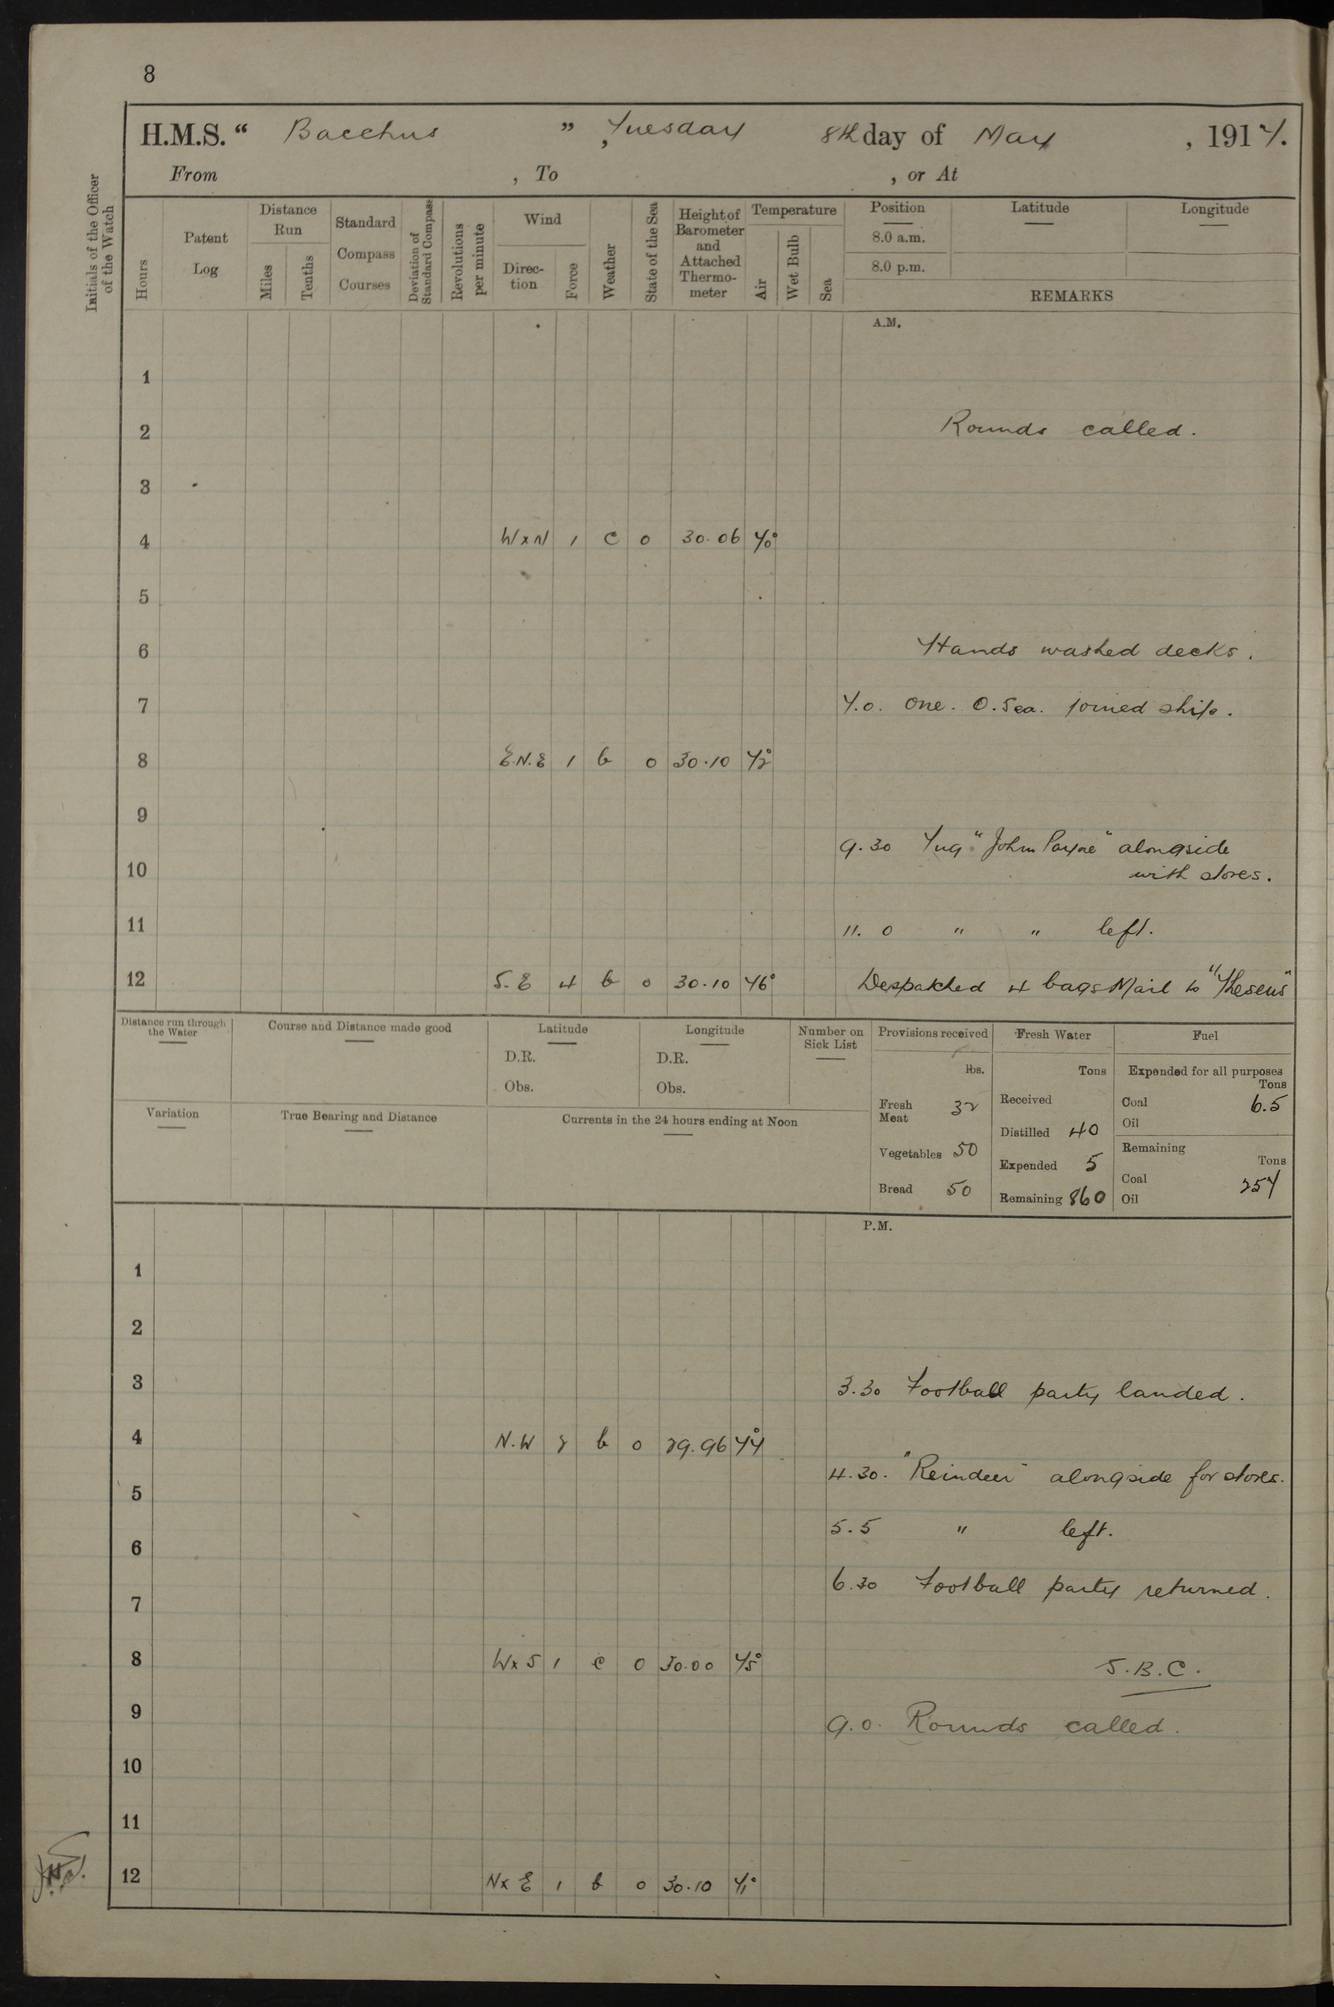 8
H.M.S. “ Bacchus ”, Tuesday 8th day of May , 1917.
From , To , or At
Initials of the Officer of the Watch
Hours
Patent Log
Distance Run
Miles
Tenths
Standard Compass Courses
Deviation of Standard Compass
Revolutions per minute
Wind
Direction
Force
Weather
State of the Sea
Height of Barometer and Attached Thermometer
Temperature
Air
Wet Bulb
Sea
Position
8.0 a.m.
8.0 p.m.
Latitude
Longitude
REMARKS
A.M.
1
2 Rounds called.
3
4 W x N 1 c 0 30.06 70°
5
6 Hands washed decks.
7 7.0. One. O. Sea. joined ship.
8 E.N.E 1 b 0 30.10 72°
9
9.30 Tug "John Payne" alongside
10 with stores.
11 11.0 " " left.
12 S.E 4 b 0 30.10 76° Despatched 4 bags Mail to "Theseus"
Distance run through the Water
Course and Distance made good
Latitude
D.R.
Obs.
Longitude
D.R.
Obs.
Number on Sick List
Provisions received
lbs.
Fresh Meat 32
Vegetables 50
Bread 50
Fresh Water
Tons
Received
Distilled 40
Expended 5
Remaining 860
Fuel
Expended for all purposes
Tons
Coal 6.5
Oil
Remaining
Tons
Coal 257
Oil
Variation
True Bearing and Distance
Currents in the 24 hours ending at Noon
P.M.
1
2
3 3.30 Football party landed.
4 N.W 2 b 0 29.96 77°
4.30. "Reindeer" alongside for stores.
5
5.5 " left.
6
6.30 Football party returned.
7
8 W x S 1 c 0 30.00 75° S.B.C.
9 9.0. Rounds called.
10
11
12 N x E 1 b 0 30.10 71°